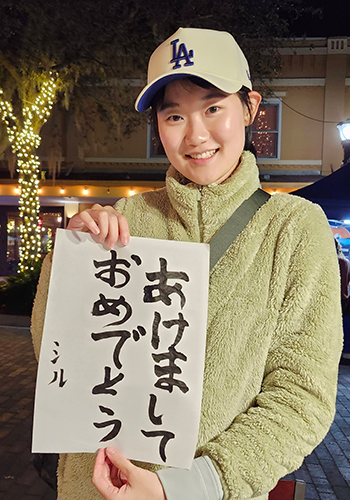 LA
あけまして
おめでとう
シル